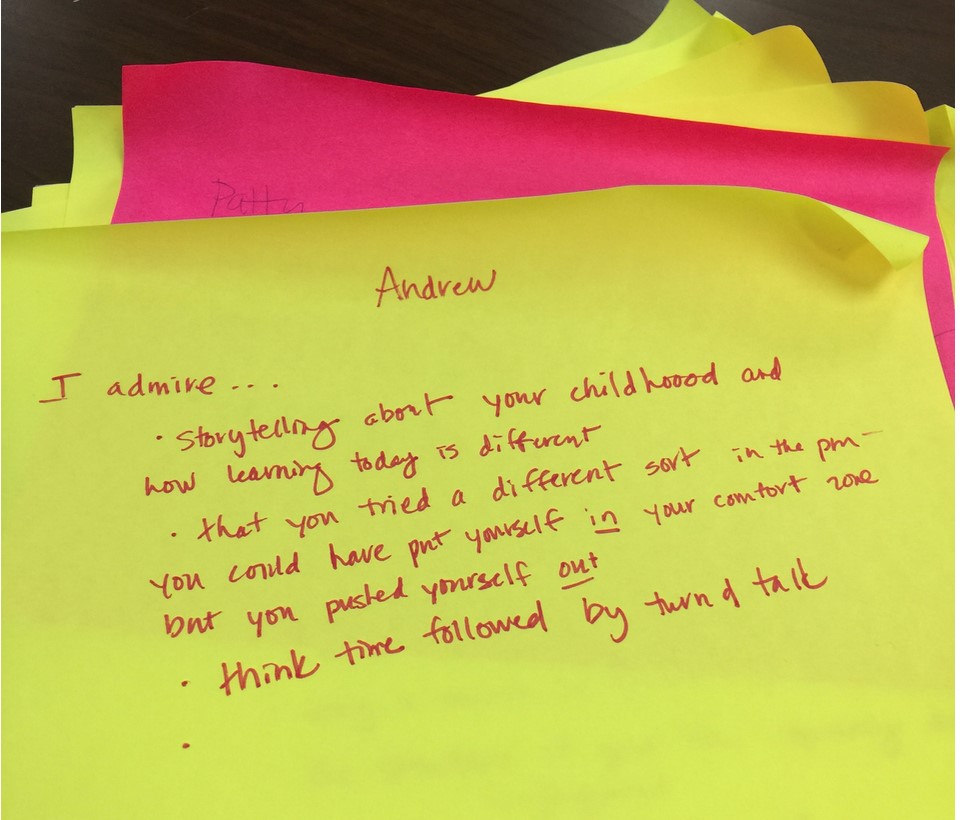 Patty
Andrew
I admire...
· storytelling about your childhoood and
how learning today is different
· that you tried a different sort in the pm-
you could have put yourself in your comfort zone
but you pushed yourself out
· think time followed by turn d talk
·